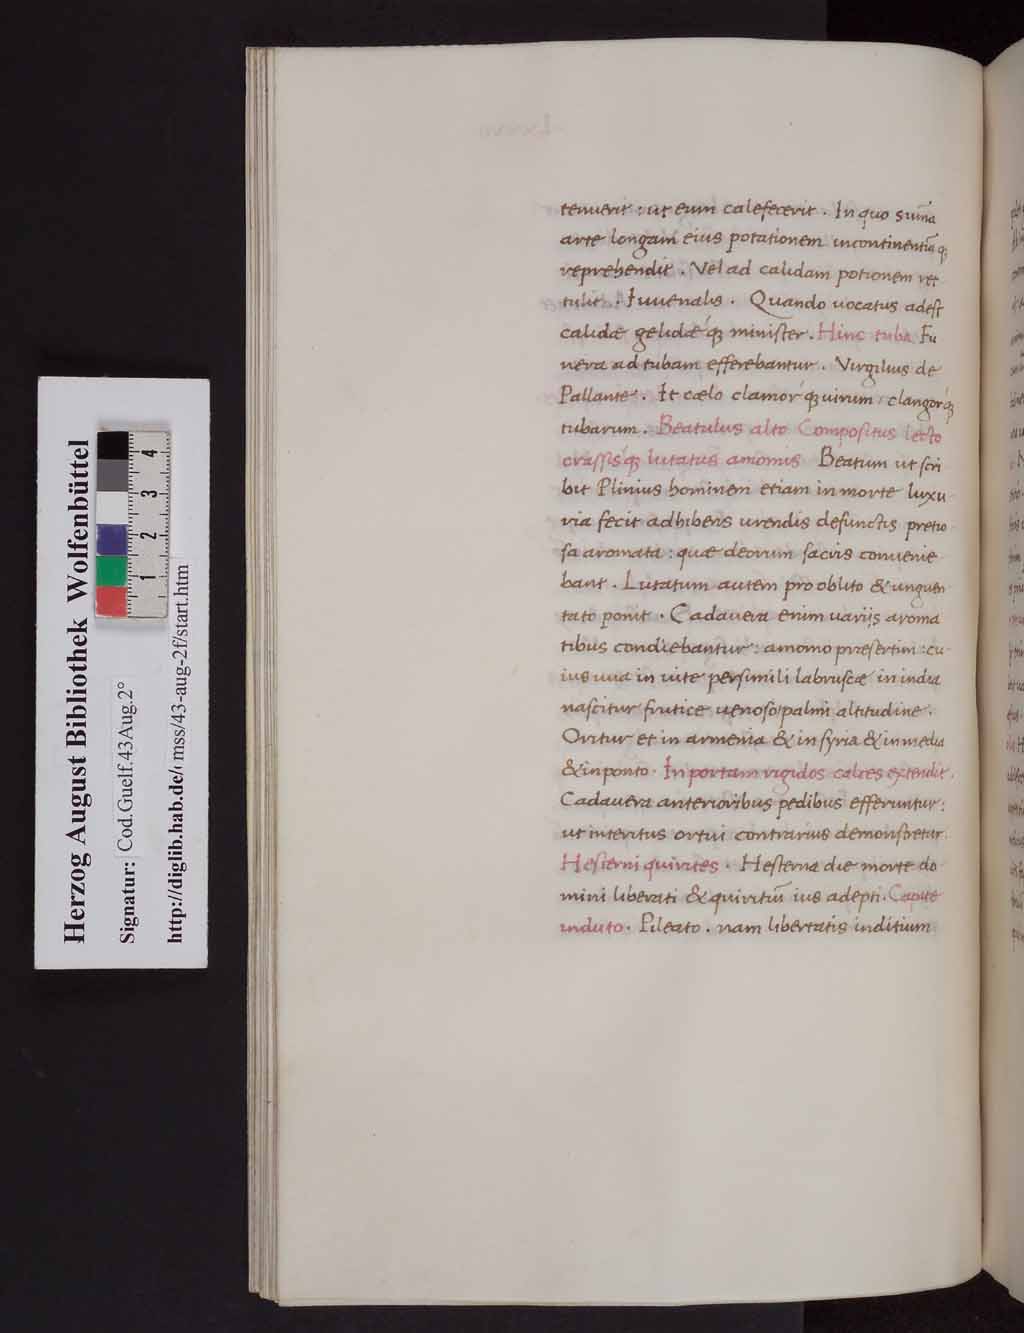 Herzog August Bibliothek Wolfenbüttel
Signatur: Cod.Guelf.43Aug.2°
http://diglib.hab.de/ mss/43-aug-2f/start.htm
1 2 3 4
tenuerit : ut eum calefecerit . In quo sum̄a
arte longam eius potationem incontinentiā q;
reprehendit . Vel ad calidam potionem ret
tulit . Iuuenalis . Quando uocatus adest
calidæ gelidæ q; minister . Hinc tuba Fu
nera ad tubam efferebantur . Virgilius de
Pallante . It cælo clamor q; uirum , clangor q;
tubarum . Beatulus alto Compositus lecto
crassis q; lutatus amomis Beatum ut scri
bit Plinius hominem etiam in morte luxu
ria fecit adhibens urendis defunctis pretio
sa aromata : quæ deorum sacris conuenie
bant . Lutatum autem pro oblito & unguen
tato ponit . Cadauera enim uarijs aroma
tibus condiebantur : amomo præsertim : cu
ius uua in uite persimili labruscæ in india
nascitur frutice uenoso palmi altitudine .
Oritur et in armenia & in syria & in media
& in ponto . In portam rigidos calces extendit .
Cadauera anterioribus pedibus efferuntur :
ut interitus ortui contrarius demonstretur .
Hesterni quirites . Hesterna die morte do
mini liberati & quiritiū ius adepti . Capite
induto . Pileato . nam libertatis inditium